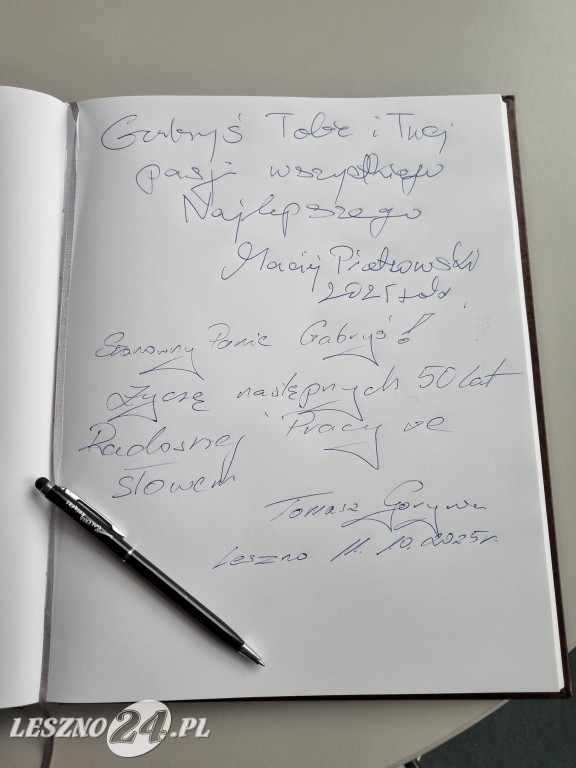 Gabryś Tobie i Twej
pasji wszystkiego
Najlepszego
Maciej Piotrowski
2025 rok.
Szanowny Panie Gabryś!
Życzę następnych 50 lat
Radosnej Pracy ze
słowem
Tomasz
Leszno 11.10.2025r.
LESZNO24.PL